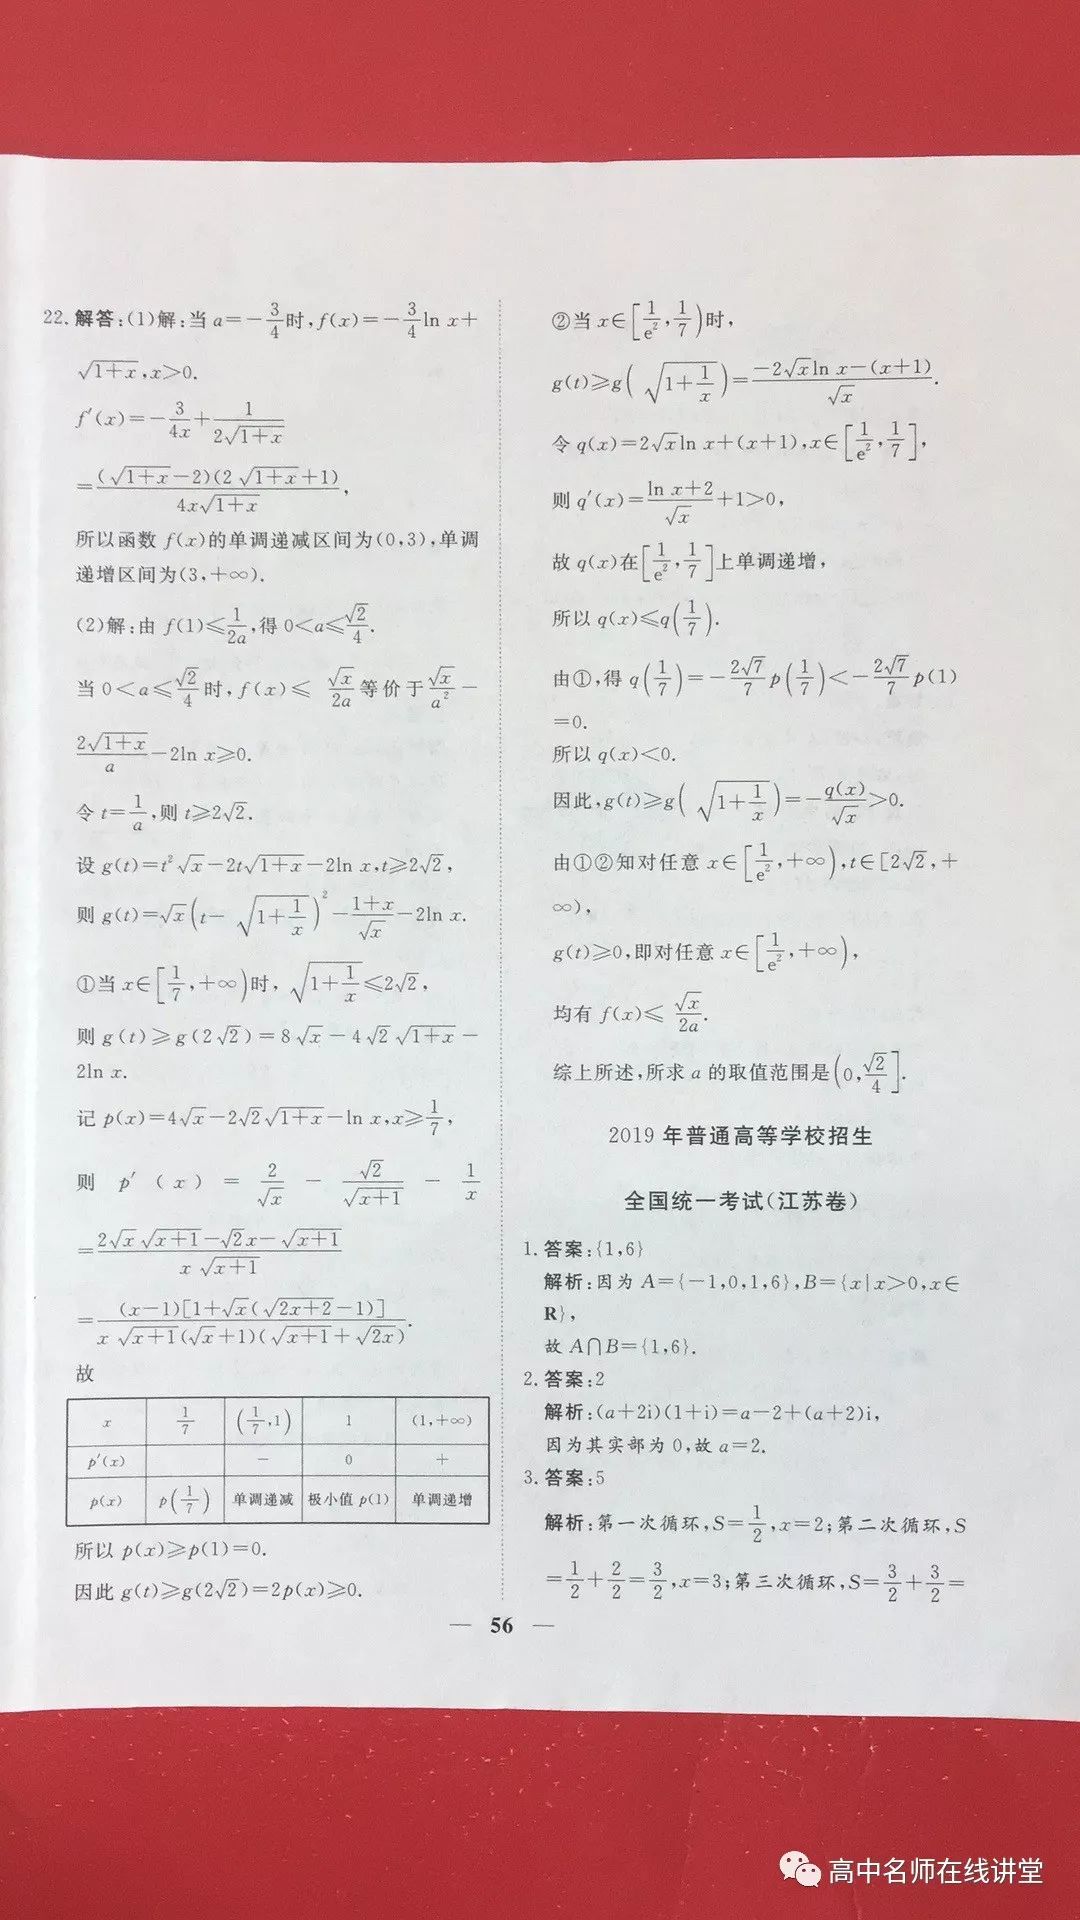 22.解答:(1)解:当 a=-3/4时,f(x)=-3/4 ln x+
√(1+x),x>0.
f′(x)=-3/(4x)+1/(2√(1+x))
=(√(1+x)-2)(2√(1+x)+1)/(4x√(1+x)),
所以函数 f(x)的单调递减区间为(0,3),单调
递增区间为(3,+∞).
(2)解:由 f(1)≤1/(2a),得 0<a≤√2/4.
当 0<a≤√2/4 时,f(x)≤ √x/(2a) 等价于 √x/a²-
2√(1+x)/a-2ln x≥0.
令 t=1/a,则 t≥2√2.
设 g(t)=t²√x-2t√(1+x)-2ln x,t≥2√2,
则 g(t)=√x(t-√(1+1/x))²-(1+x)/√x-2ln x.
①当 x∈[1/7,+∞)时,√(1+1/x)≤2√2,
则 g(t)≥g(2√2)=8√x-4√2√(1+x)-
2ln x.
记 p(x)=4√x-2√2√(1+x)-ln x,x≥1/7,
则 p′(x)=2/√x-√2/√(x+1)-1/x
=(2√x√(x+1)-√2x-√(x+1))/(x√(x+1))
=(x-1)[1+√x(√(2x+2)-1)]/(x√(x+1)(√x+1)(√(x+1)+√(2x))).
故
x 1/7 (1/7,1) 1 (1,+∞)
p′(x) - 0 +
p(x) p(1/7) 单调递减 极小值 p(1) 单调递增
所以 p(x)≥p(1)=0.
因此 g(t)≥g(2√2)=2p(x)≥0.
②当 x∈[1/e²,1/7)时,
g(t)≥g(√(1+1/x))=(-2√xln x-(x+1))/√x.
令 q(x)=2√xln x+(x+1),x∈[1/e²,1/7],
则 q′(x)=(ln x+2)/√x+1>0,
故 q(x)在[1/e²,1/7]上单调递增,
所以 q(x)≤q(1/7).
由①,得 q(1/7)=-2√7/7 p(1/7)<-2√7/7 p(1)
=0.
所以 q(x)<0.
因此,g(t)≥g(√(1+1/x))=-q(x)/√x>0.
由①②知对任意 x∈[1/e²,+∞),t∈[2√2,+
∞),
g(t)≥0,即对任意 x∈[1/e²,+∞),
均有 f(x)≤ √x/(2a).
综上所述,所求 a 的取值范围是(0,√2/4].
2019 年普通高等学校招生
全国统一考试(江苏卷)
1.答案:{1,6}
解析:因为 A={-1,0,1,6},B={x|x>0,x∈
R},
故 A∩B={1,6}.
2.答案:2
解析:(a+2i)(1+i)=a-2+(a+2)i,
因为其实部为 0,故 a=2.
3.答案:5
解析:第一次循环,S=1/2,x=2;第二次循环,S
=1/2+2/2=3/2,x=3;第三次循环,S=3/2+3/2=
— 56 —
高中名师在线讲堂